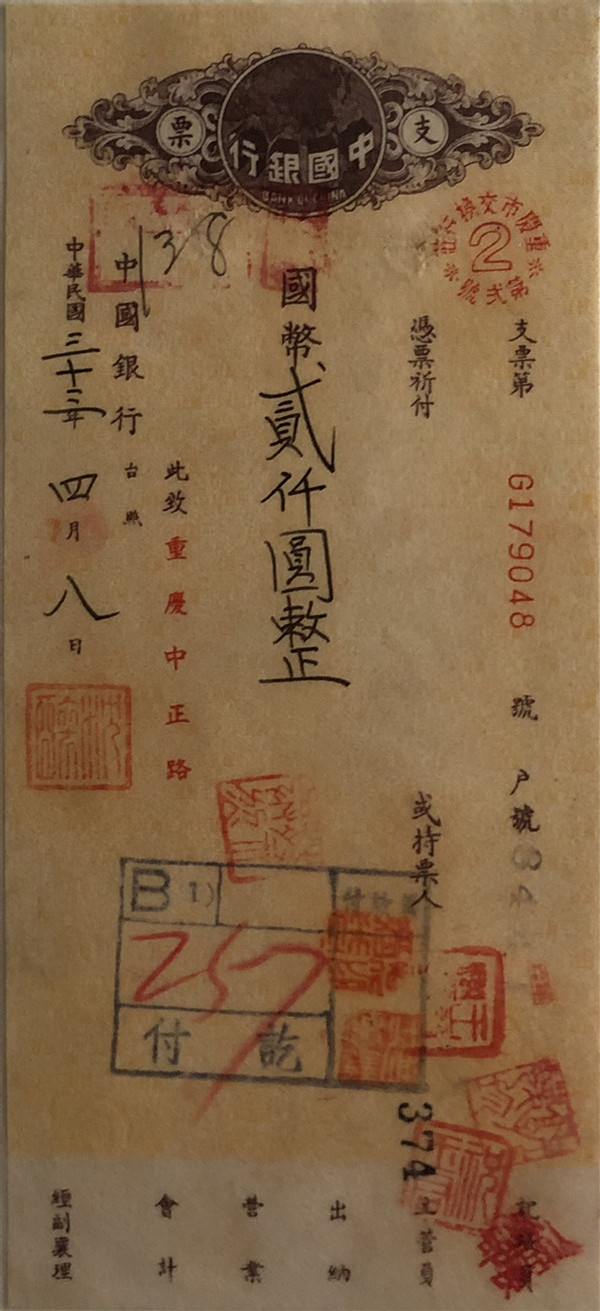 支票
中國銀行
BANK OF CHINA
重慶市交換行莊第貳號
2
支票第 G179048 號 戶號
憑票祈付 或持票人
國幣貳仟圓整正
此致重慶中正路
中國銀行 台照
138
中華民國三十三年四月八日
B 1)
257
付訖
374
記賬員
主管員
出納
營業
會計
經副襄理